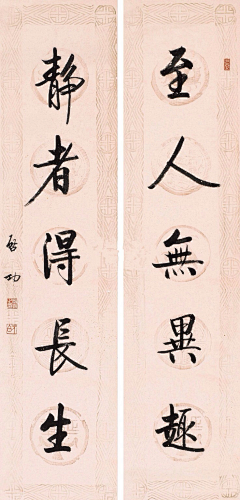 至人無異趣
靜者得長生
啟功